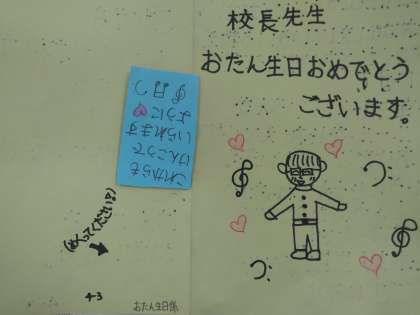 校長先生
おたん生日おめでとう
ございます。
これからも
けんこうで
いられます
ように
(めくってください!)
4-3
おたん生日係